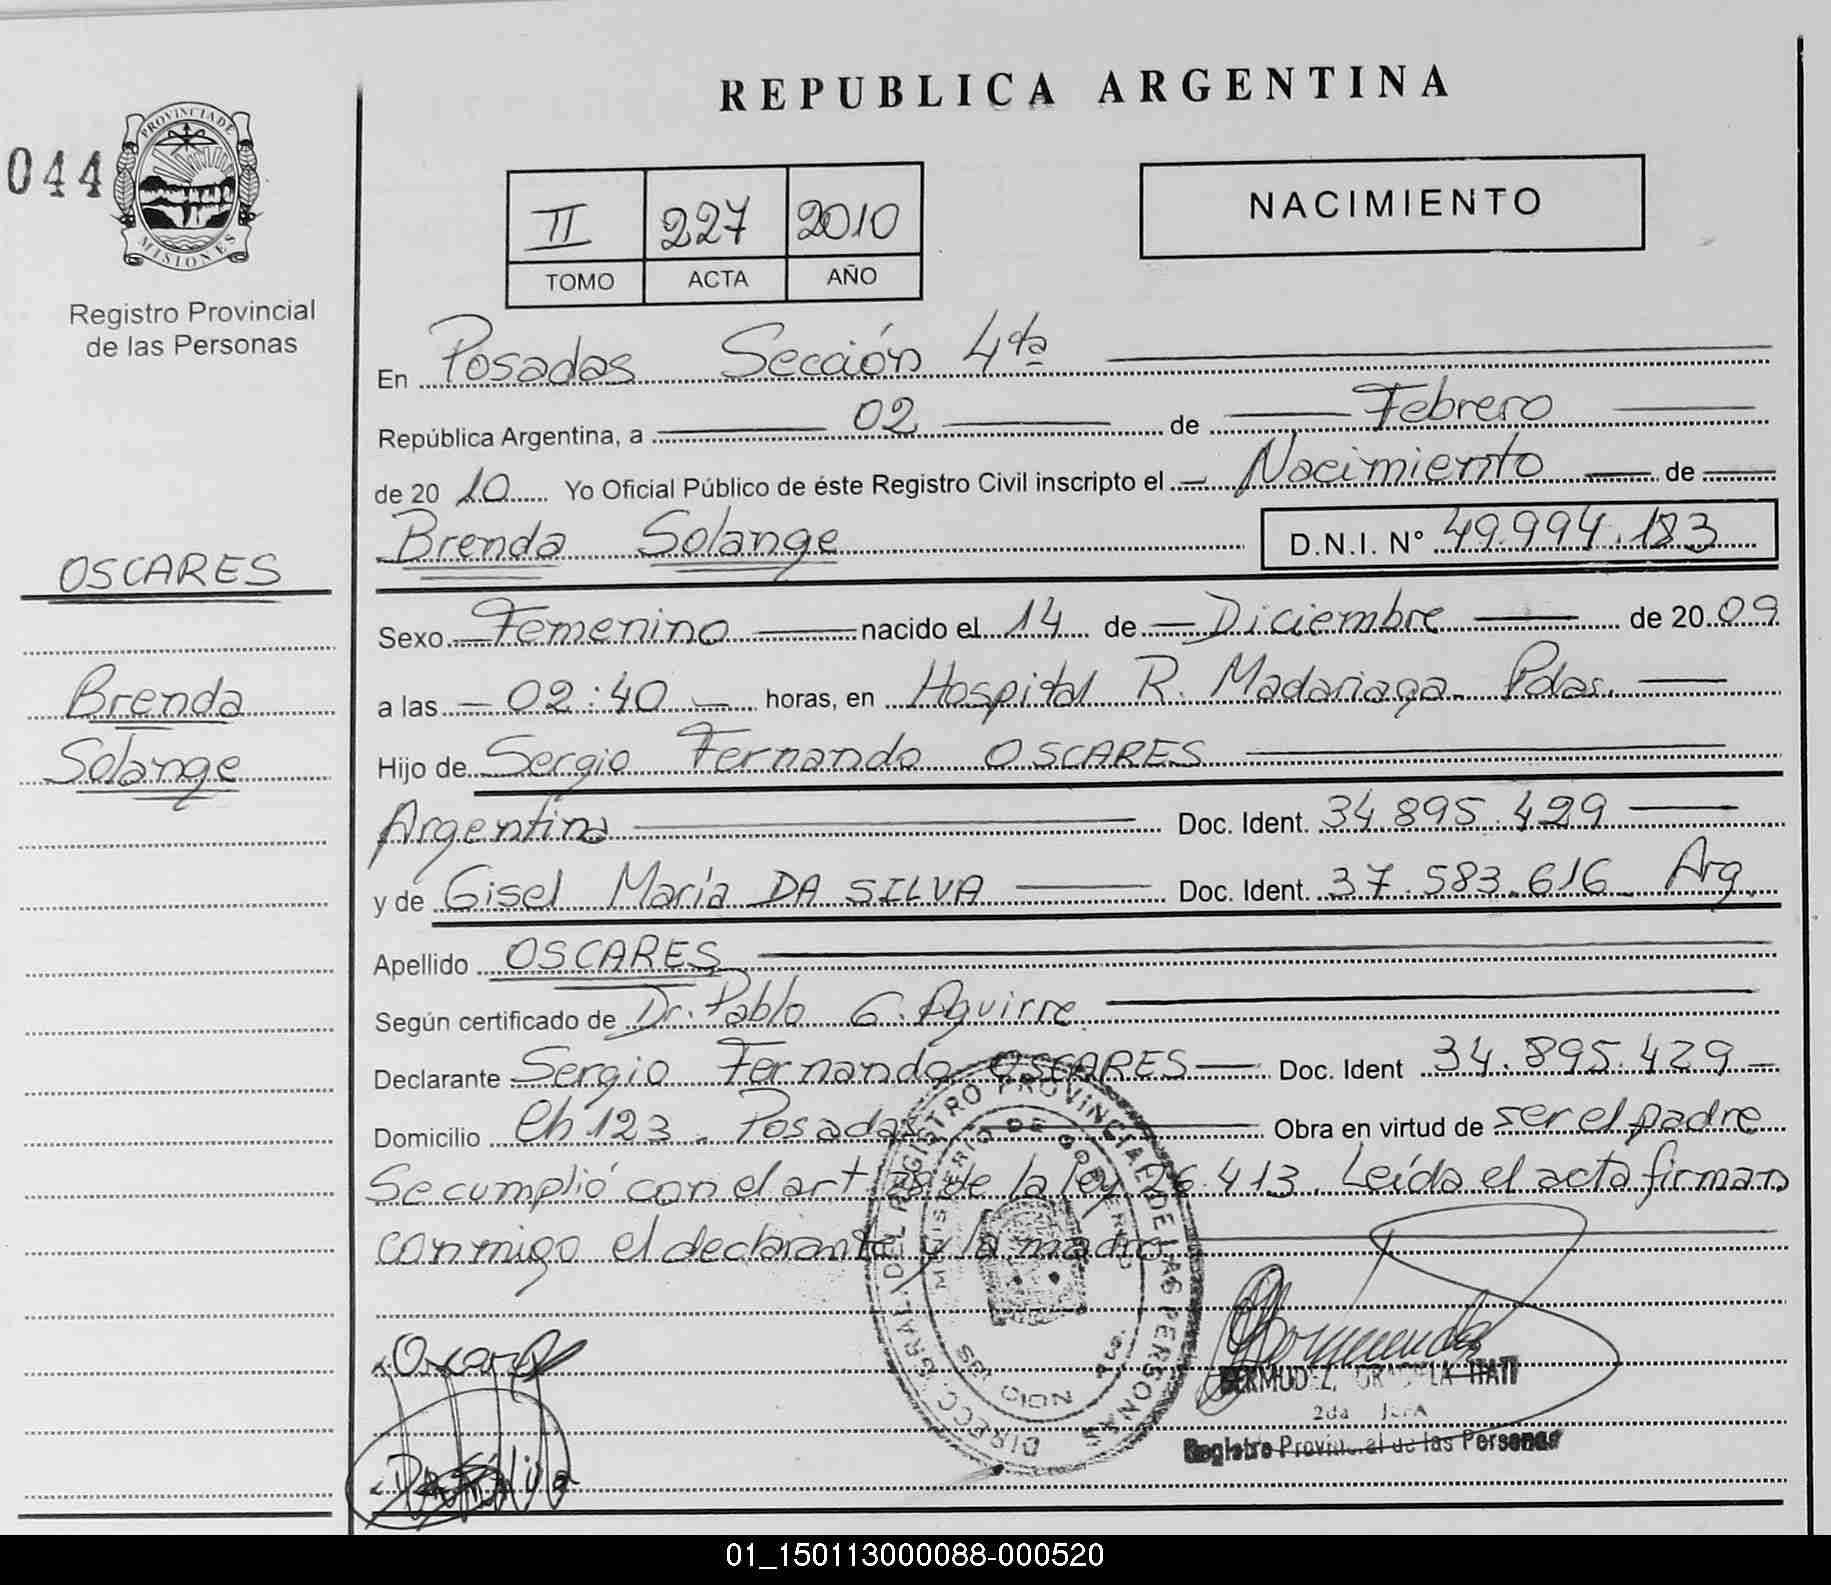 REPUBLICA ARGENTINA
044
PROVINCIA DE
MISIONES
Registro Provincial
de las Personas
II 227 2010
TOMO ACTA AÑO
NACIMIENTO
En Posadas Sección 4ta
República Argentina, a 02 de Febrero
de 20 10 Yo Oficial Público de éste Registro Civil inscripto el Nacimiento de
Brenda Solange D.N.I. N° 49.994.183
OSCARES
Brenda
Solange
Sexo Femenino nacido el 14 de Diciembre de 20 09
a las 02:40 horas, en Hospital R. Madariaga. Pdas.
Hijo de Sergio Fernando OSCARES
Argentina Doc. Ident. 34.895.429
y de Gisel María DA SILVA Doc. Ident. 37.583.616 Arg.
Apellido OSCARES
Según certificado de Dr. Pablo G. Aguirre
Declarante Sergio Fernando OSCARES Doc. Ident 34.895.429
Domicilio Ch 123. Posadas Obra en virtud de ser el padre
Se cumplió con el art 28 de la ley 26.413. Leída el acta firman
conmigo el declarante y la madre
DIRECC. GRAL. DEL REGISTRO PROVINCIAL DE LAS PERSONAS
MINISTERIO DE GOBIERNO
Oscares
Da Silva
BERMUDEZ, GRACIELA ITATI
2da JEFA
Registro Provincial de las Personas
01_150113000088-000520